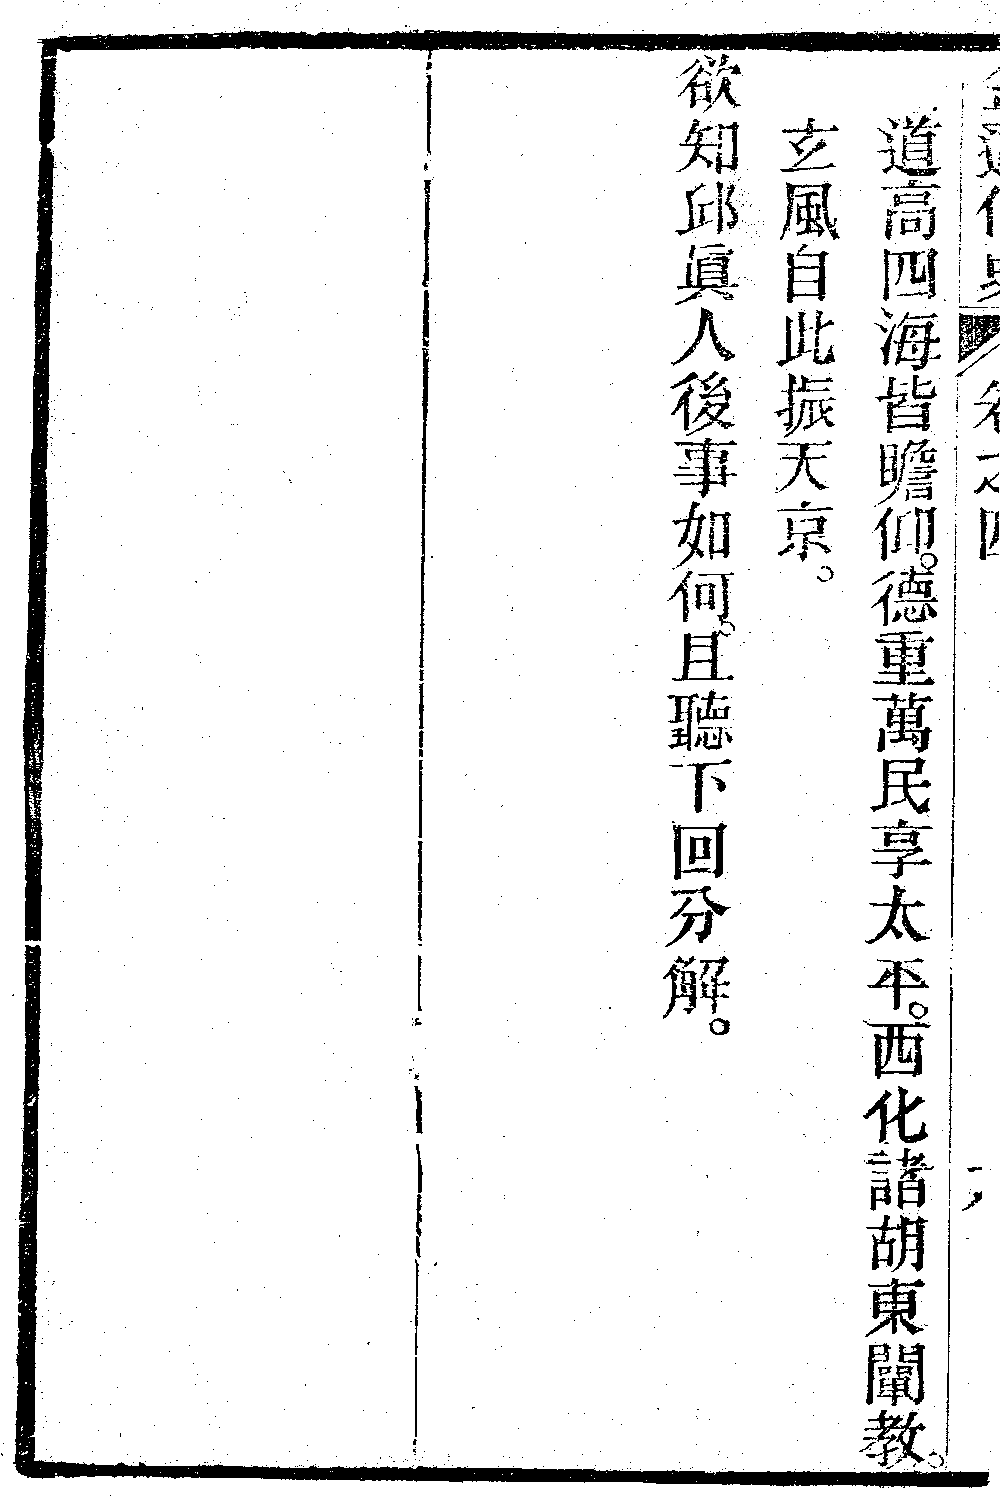 卷之四
道高四海皆瞻仰。德重萬民享太平。西化諸胡東闡教。
玄風自此振天京。
欲知邱眞人後事如何。且聽下回分解。